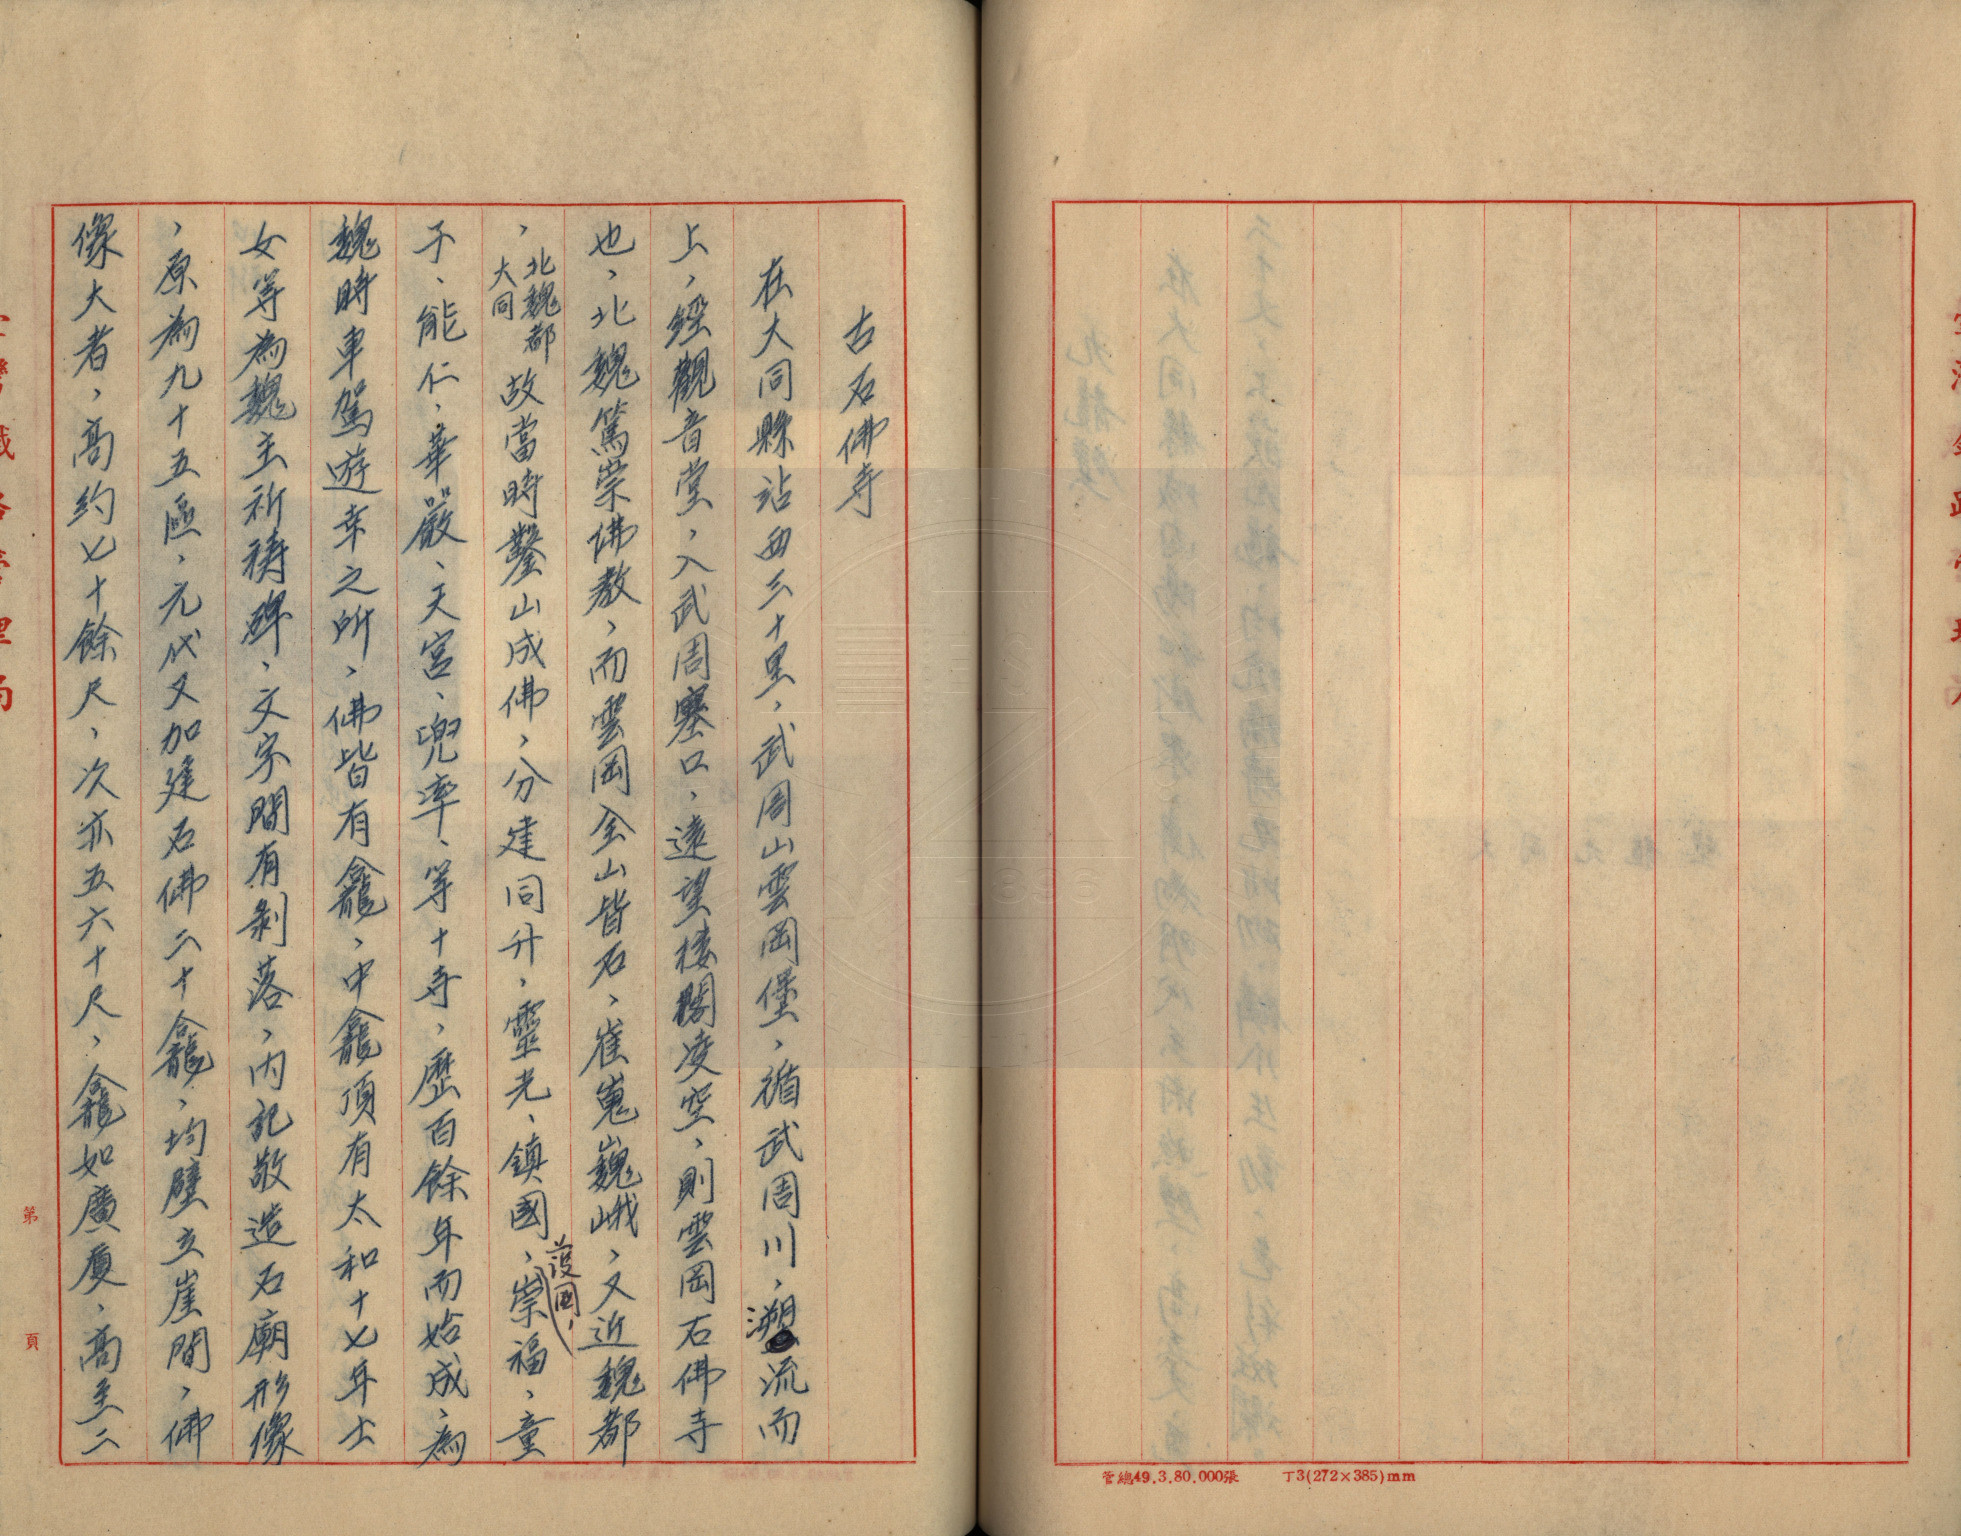 古石佛寺
在大同縣站西三十里，武周山雲岡堡，循武周川，溯流而
上，經觀音堂，入武周塞口，遠望樓閣凌空，則雲岡石佛寺
也，北魏篤崇佛教，而雲岡全山皆石，崔嵬巍峨，又近魏都
，北魏都大同故當時鑿山成佛，分建同升，靈光、鎮國、護國，崇福、童
子、能仁、華嚴、天宮、兜率、等十寺，歷百餘年而始成，為
魏時車駕遊幸之所，佛皆有龕，中龕頂有太和十七年士
女等為魏主祈禱碑，文字間有剝落，內記敬造石廟形像
，原為九十五區，元代又加建石佛二十龕，均壁立崖間，佛
像大者，高約七十餘尺，次亦五六十尺，龕如廣廈，高至二
第 頁
管總49.3.80.000張 丁3(272×385)mm